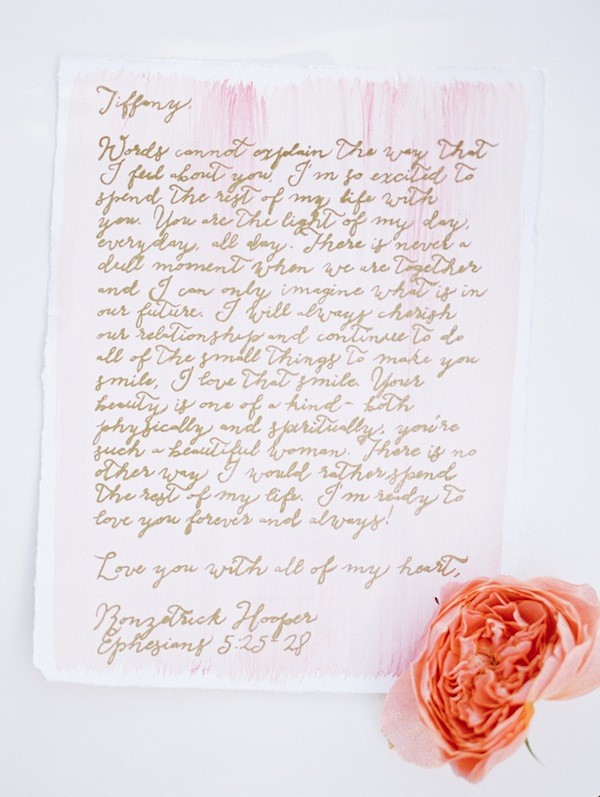 Tiffany,
Words cannot explain the way that
I feel about you. I'm so excited to
spend the rest of my life with
you. You are the light of my day,
everyday, all day. There is never a
dull moment when we are together
and I can only imagine what is in
our future. I will always cherish
our relationship and continue to do
all of the small things to make you
smile, I love that smile. Your
beauty is one of a kind - both
physically and spiritually, you're
such a beautiful woman. There is no
other way I would rather spend
the rest of my life. I'm ready to
love you forever and always!
Love you with all of my heart,
Ronzetrick Hooper
Ephesians 5:25-28